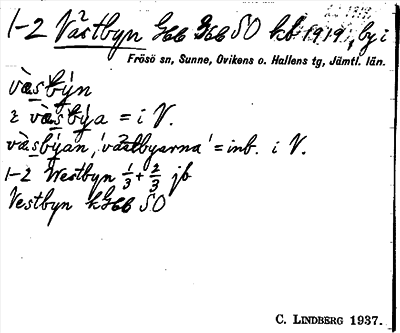 1-2 Västbyn Geb GebSO kb 1919, by i
Frösö sn, Sunne, Ovikens o. Hallens tg, Jämtl. län.
vàsby̌n
i vàsby̌a = i V.
vàsby̌an, 'västbyarna' = inb. i V.
1-2 Westbyn 1/3 + 2/3 jb
Vestbyn kGeb SO
C. LINDBERG 1937.